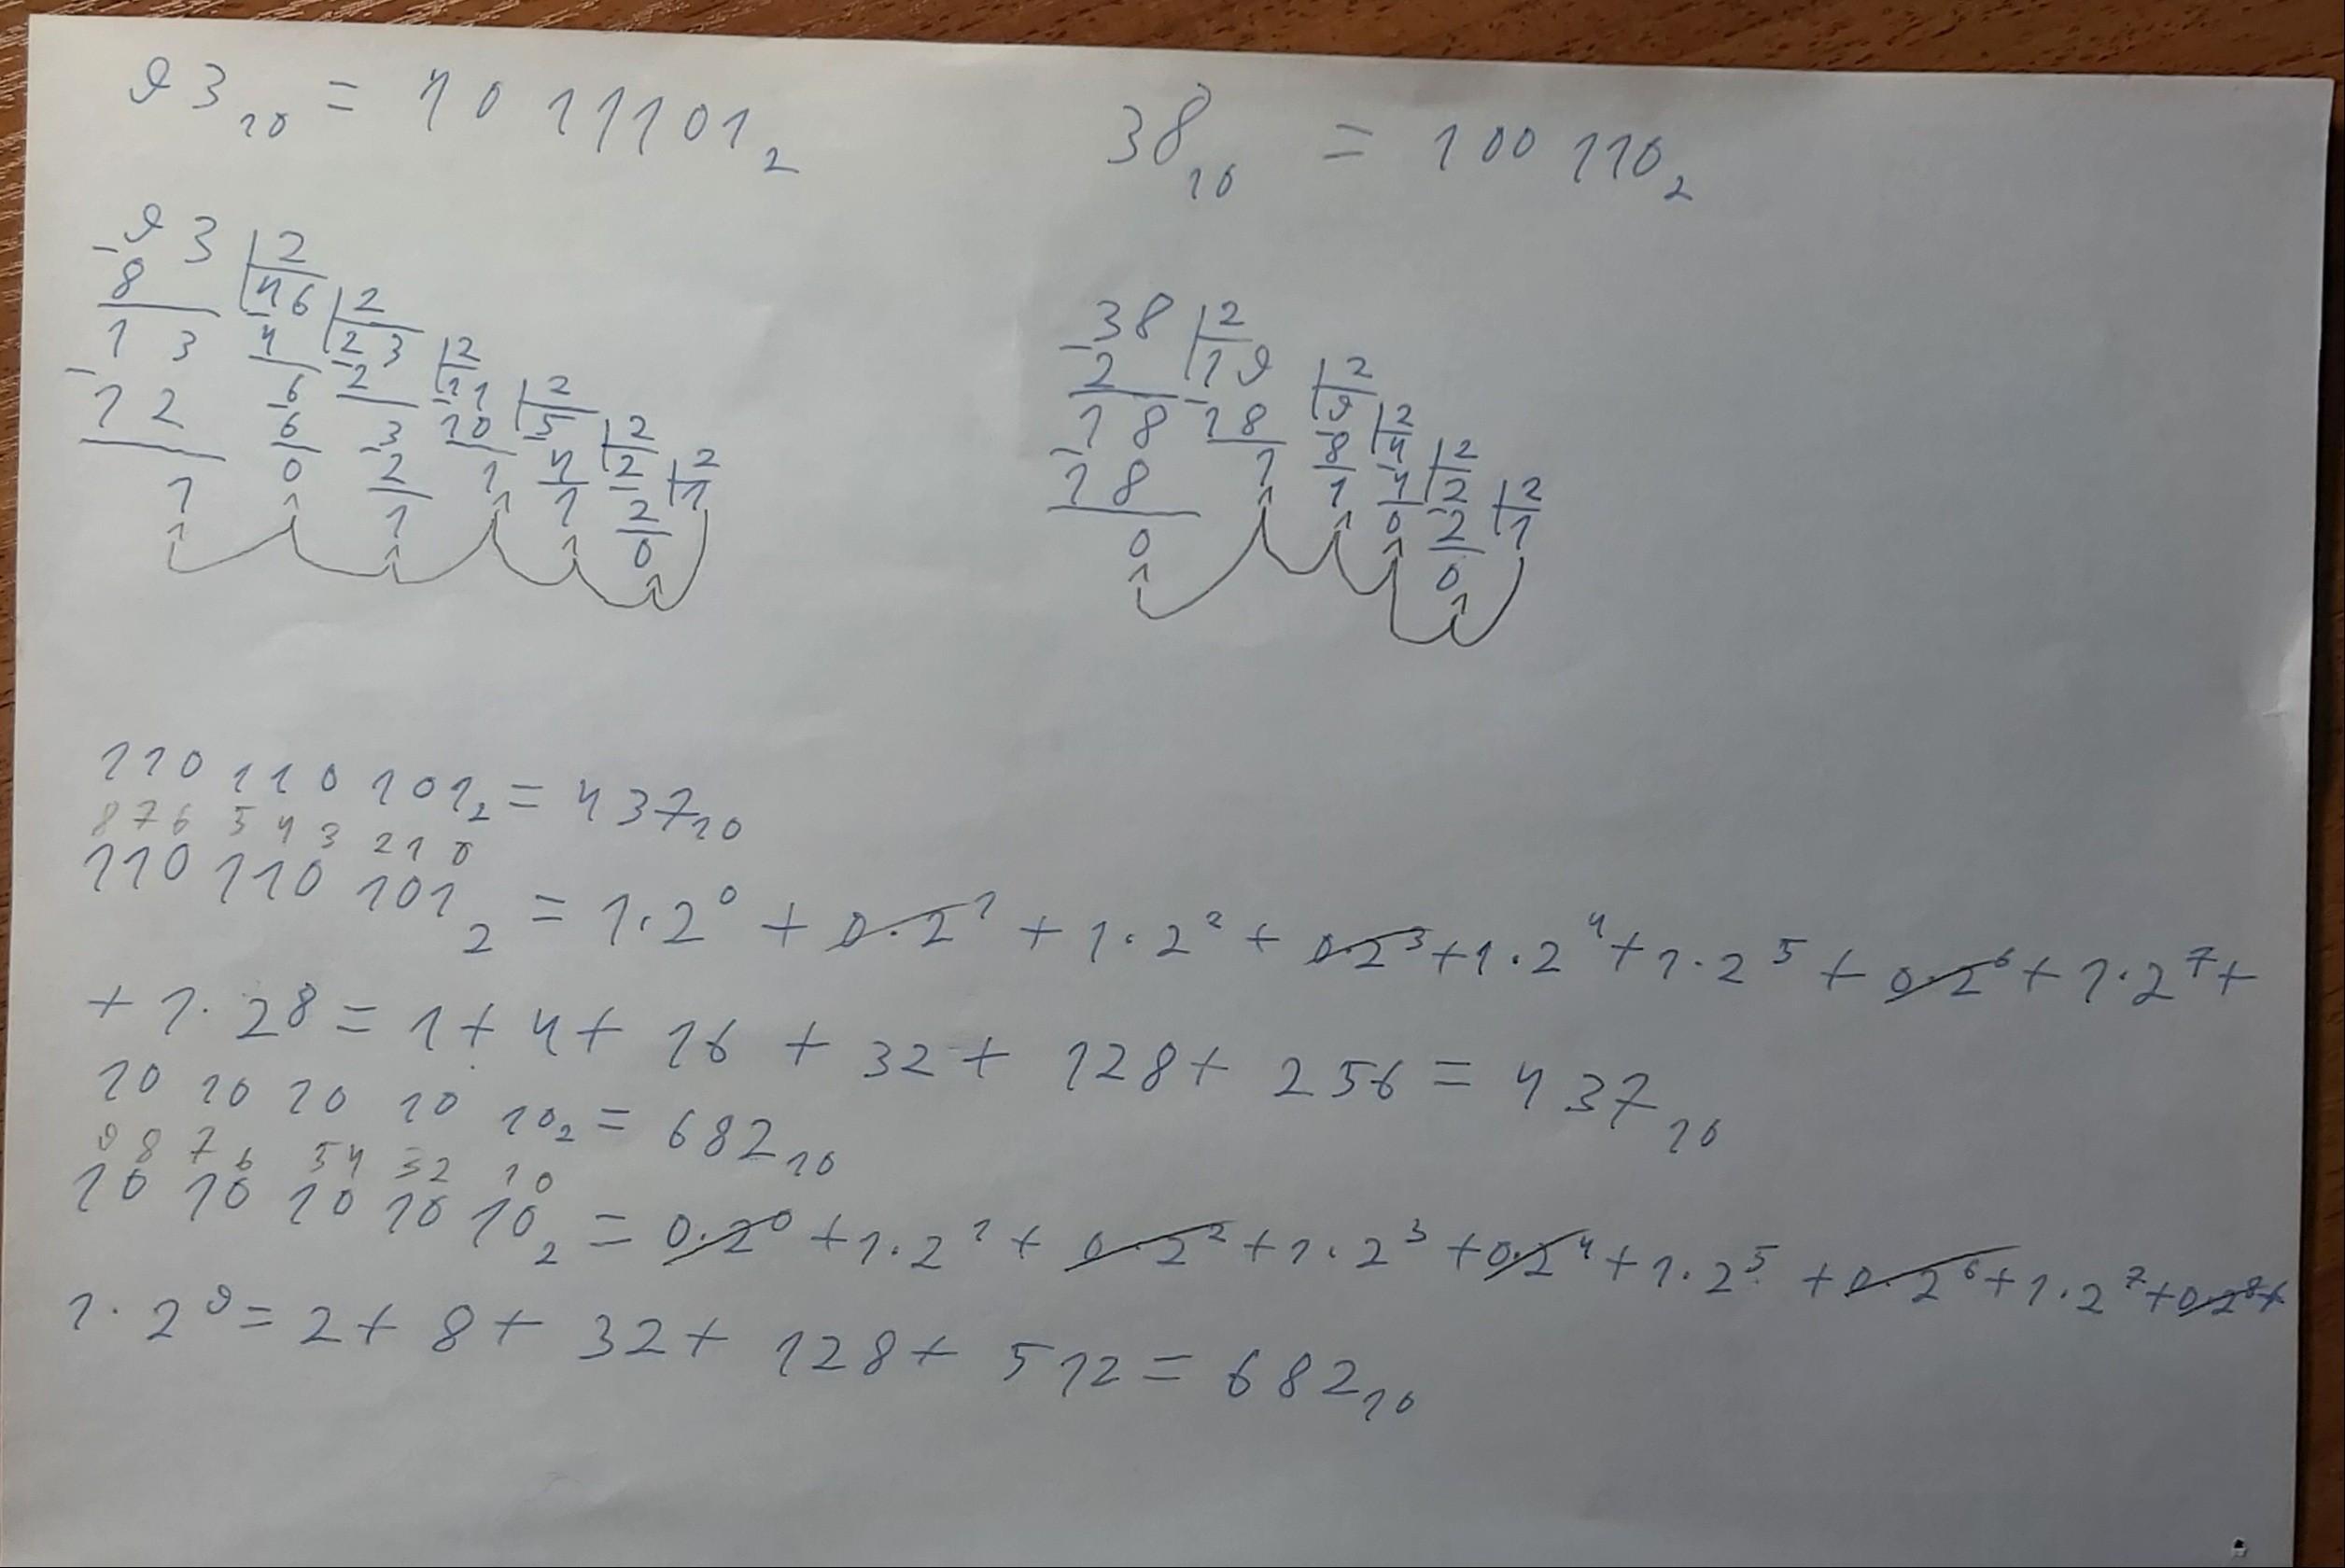 93₁₀ = 1011101₂
38₁₀ = 100110₂
-93 |2
8 |46 |2
13 -4 |23 |2
-12 -6 -2 |11 |2
1 6 -3 -10 |5 |2
0 2 1 -4 |2 |2
1 1 -2 |1
0
-38 |2
2 |19 |2
-18 -18 |9 |2
18 1 -8 |4 |2
0 1 -4 |2 |2
0 -2 |1
0
110 110 101₂ = 437₁₀
8 7 6 5 4 3 2 1 0
110 110 101₂ = 1·2⁰ + 0·2¹ + 1·2² + 0·2³ + 1·2⁴ + 1·2⁵ + 0·2⁶ + 1·2⁷ +
+ 1·2⁸ = 1 + 4 + 16 + 32 + 128 + 256 = 437₁₀
10 10 10 10 10₂ = 682₁₀
9 8 7 6 5 4 3 2 1 0
10 10 10 10 10₂ = 0·2⁰ + 1·2¹ + 0·2² + 1·2³ + 0·2⁴ + 1·2⁵ + 0·2⁶ + 1·2⁷ + 0·2⁸ +
1·2⁹ = 2 + 8 + 32 + 128 + 512 = 682₁₀